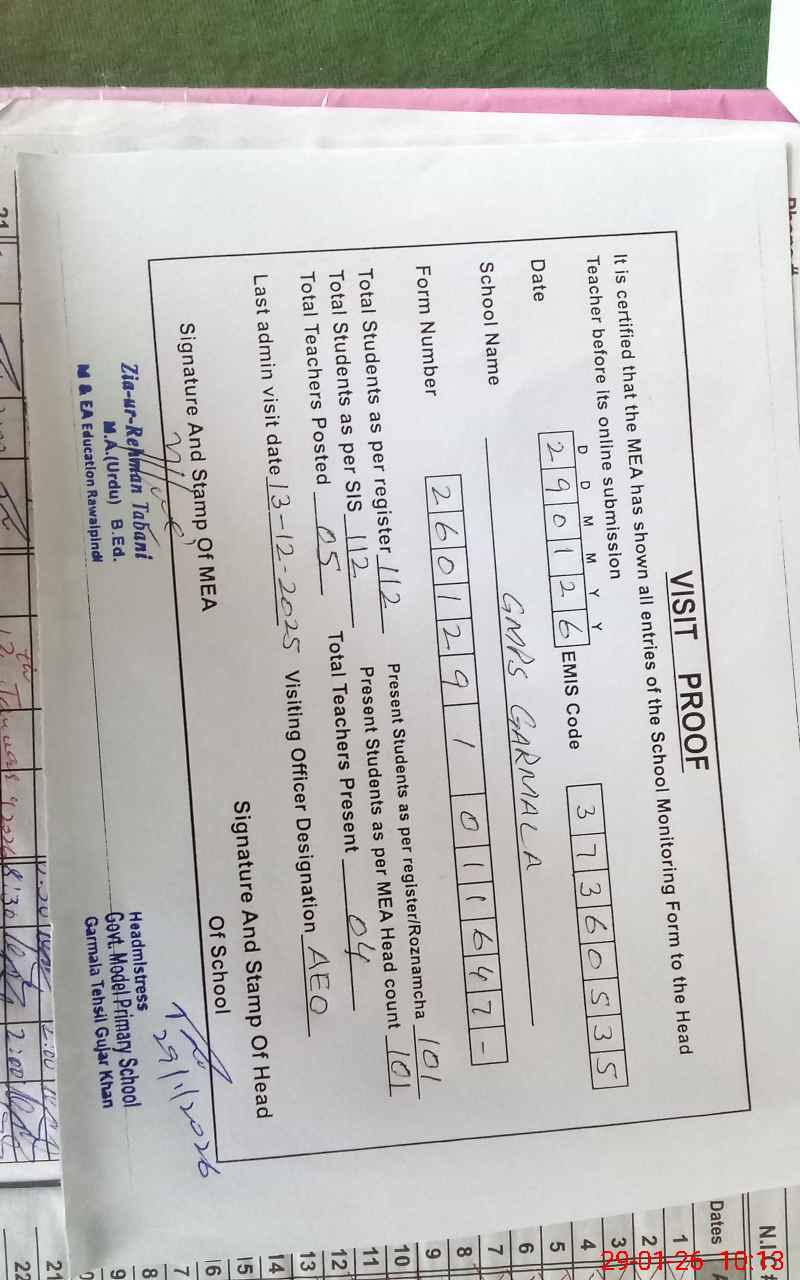 VISIT PROOF
It is certified that the MEA has shown all entries of the School Monitoring Form to the Head
Teacher before its online submission
D D M M Y Y
Date 2 9 0 1 2 6 EMIS Code 3 7 3 6 0 5 3 5
School Name GMPS GARMALA
Form Number 2 6 0 1 2 9 1 0 1 1 6 4 7 -
Total Students as per register 112 Present Students as per register/Roznamcha 101
Total Students as per SIS 112 Present Students as per MEA Head count 101
Total Teachers Posted 05 Total Teachers Present 04
Last admin visit date 13-12-2025 Visiting Officer Designation AEO
Signature And Stamp Of MEA
Signature And Stamp Of Head
Of School
29/1/2026
Zia-ur-Rehman Tabani
M.A.(Urdu) B.Ed.
M & EA Education Rawalpindi
Headmistress
Govt. Model Primary School
Garmala Tehsil Gujar Khan
Dates
1
2
3
4
5
6
7
8
9
10
11
12
13
14
15
16
7
8
9
21
22
21
8:30
2:00
2:00
29-01-26 10:13